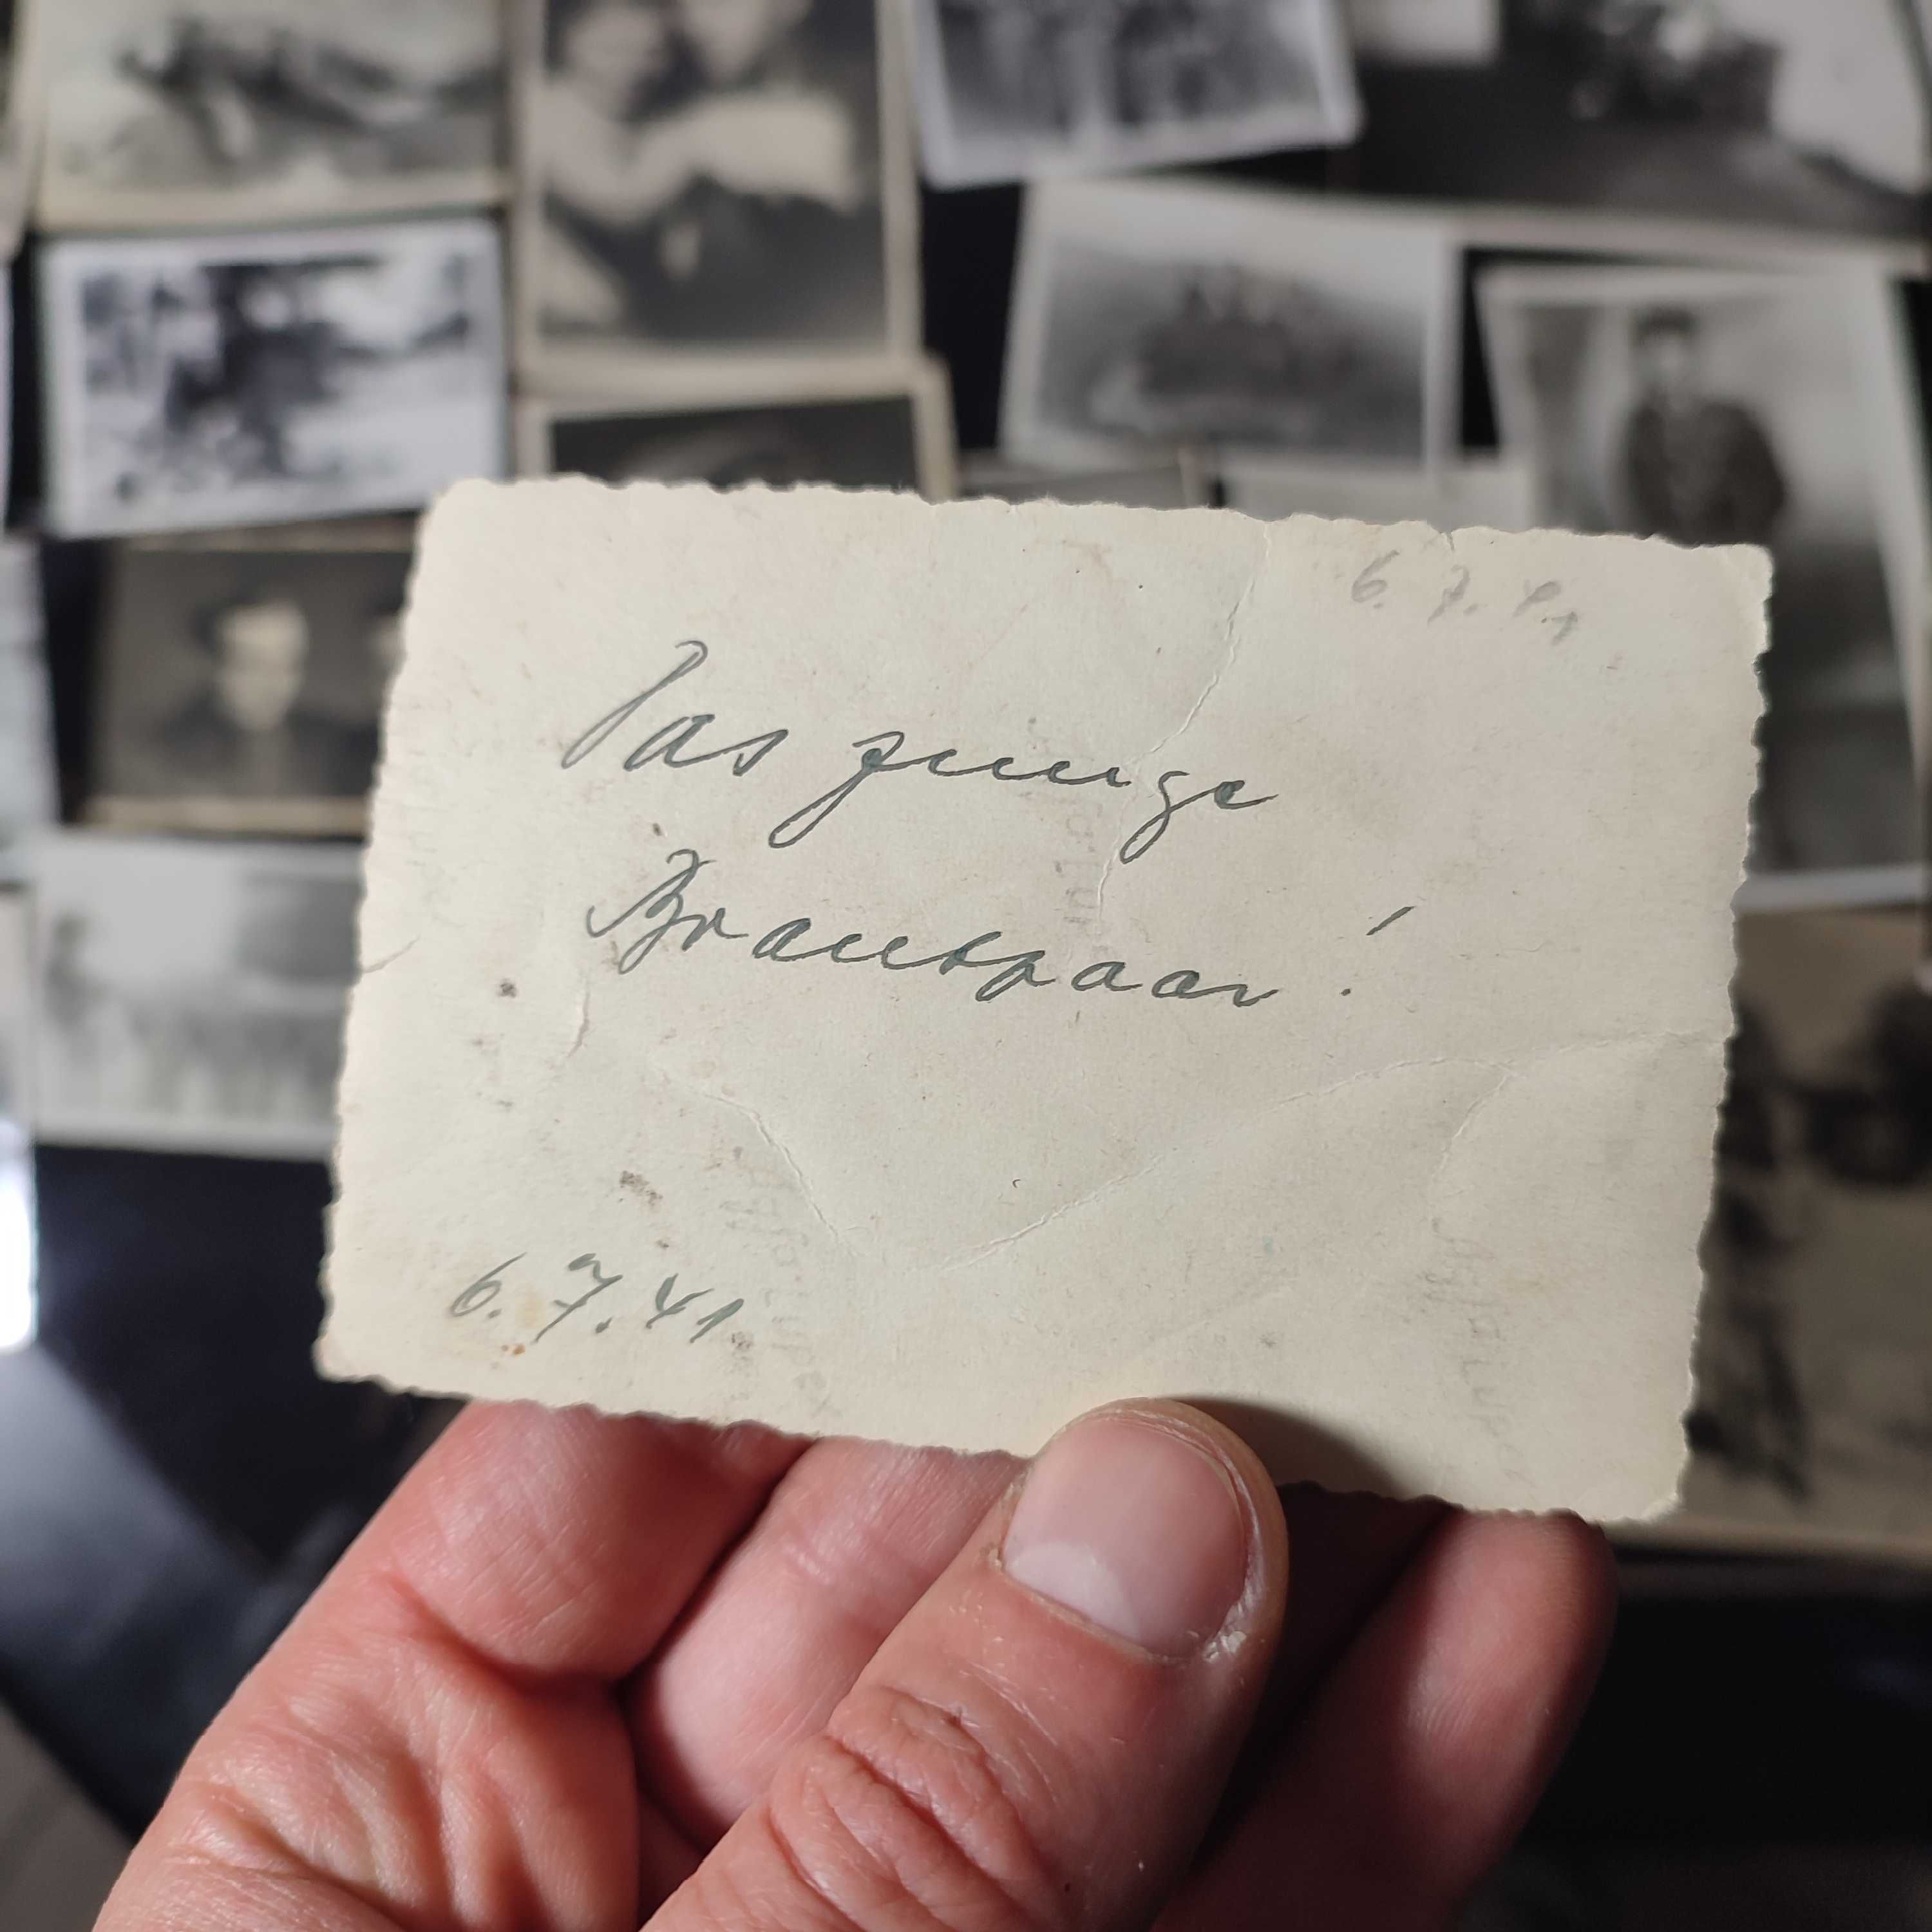 6. 7. 41
Das junge
Brautpaar!
6. 7. 41